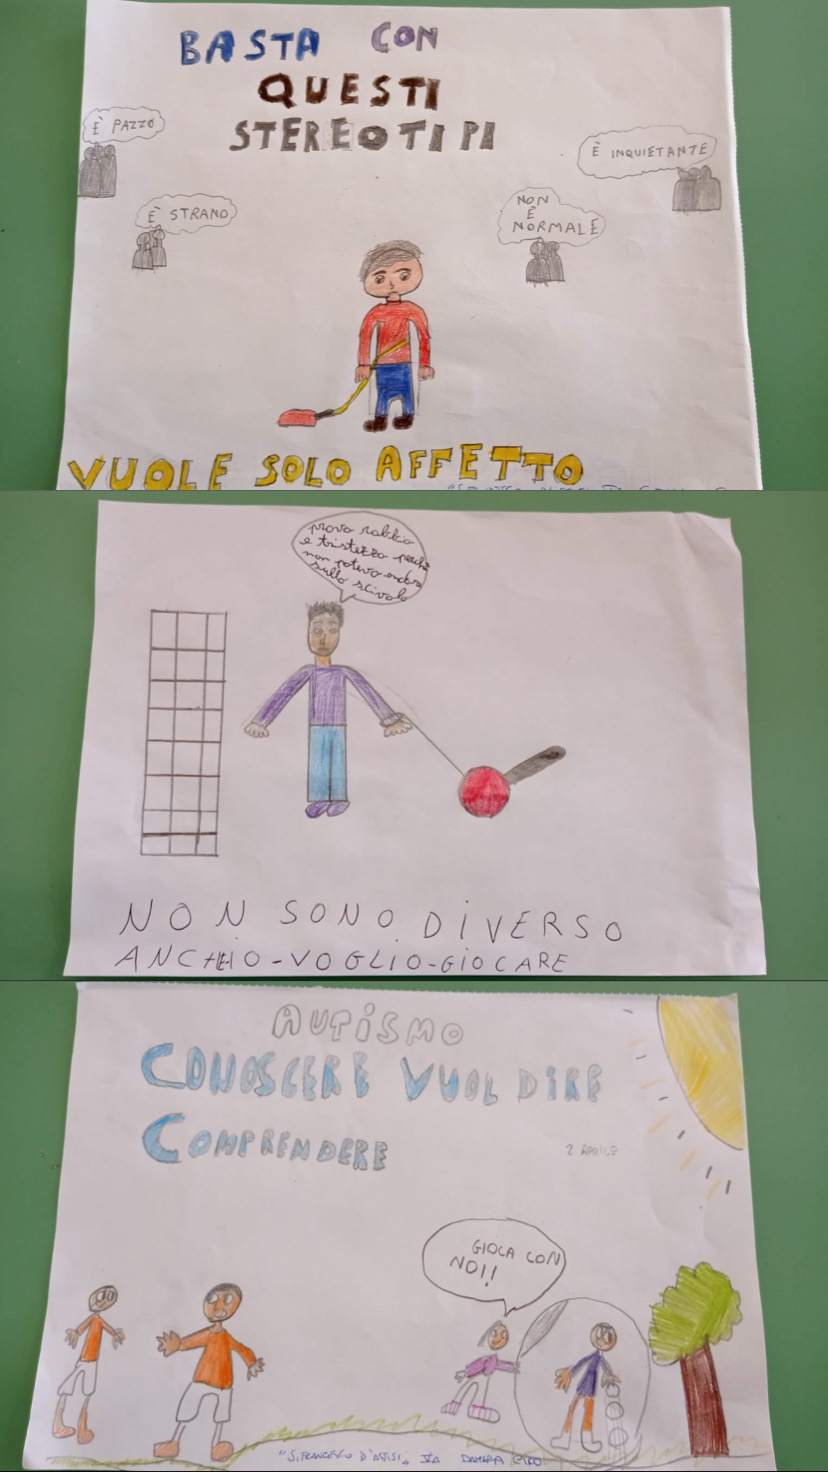 BASTA CON
QUESTI
STEREOTIPI
È PAZZO
È INQUIETANTE
È STRANO
NON
È
NORMALE
VUOLE SOLO AFFETTO
provo rabbia
e tristezza perché
non potevo andare
sullo scivolo
NON SONO DIVERSO
ANCH'IO-VOGLIO-GIOCARE
AUTISMO
CONOSCERE VUOL DIRE
COMPRENDERE
2 APRILE
GIOCA CON
NOI!!
"S.FRANCESCO D'ASSISI"